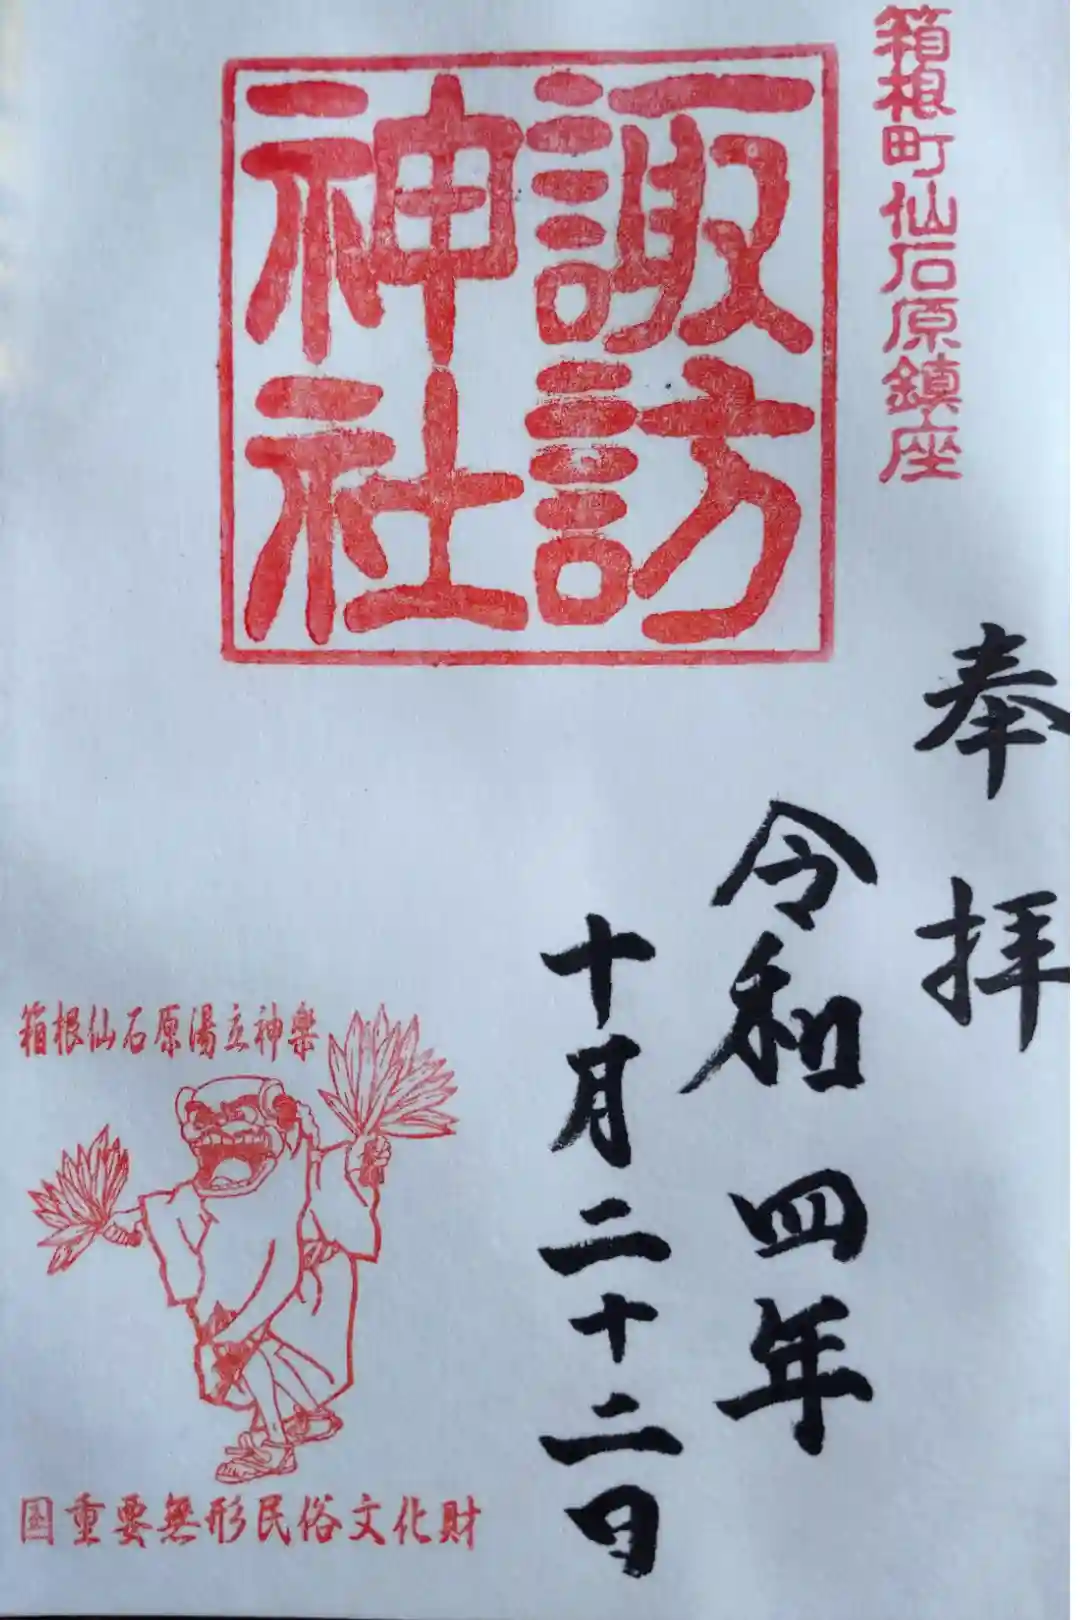 箱根町仙石原鎮座
諏訪
神社
奉拝
令和四年
十月二十二日
箱根仙石原湯立神楽
国重要無形民俗文化財